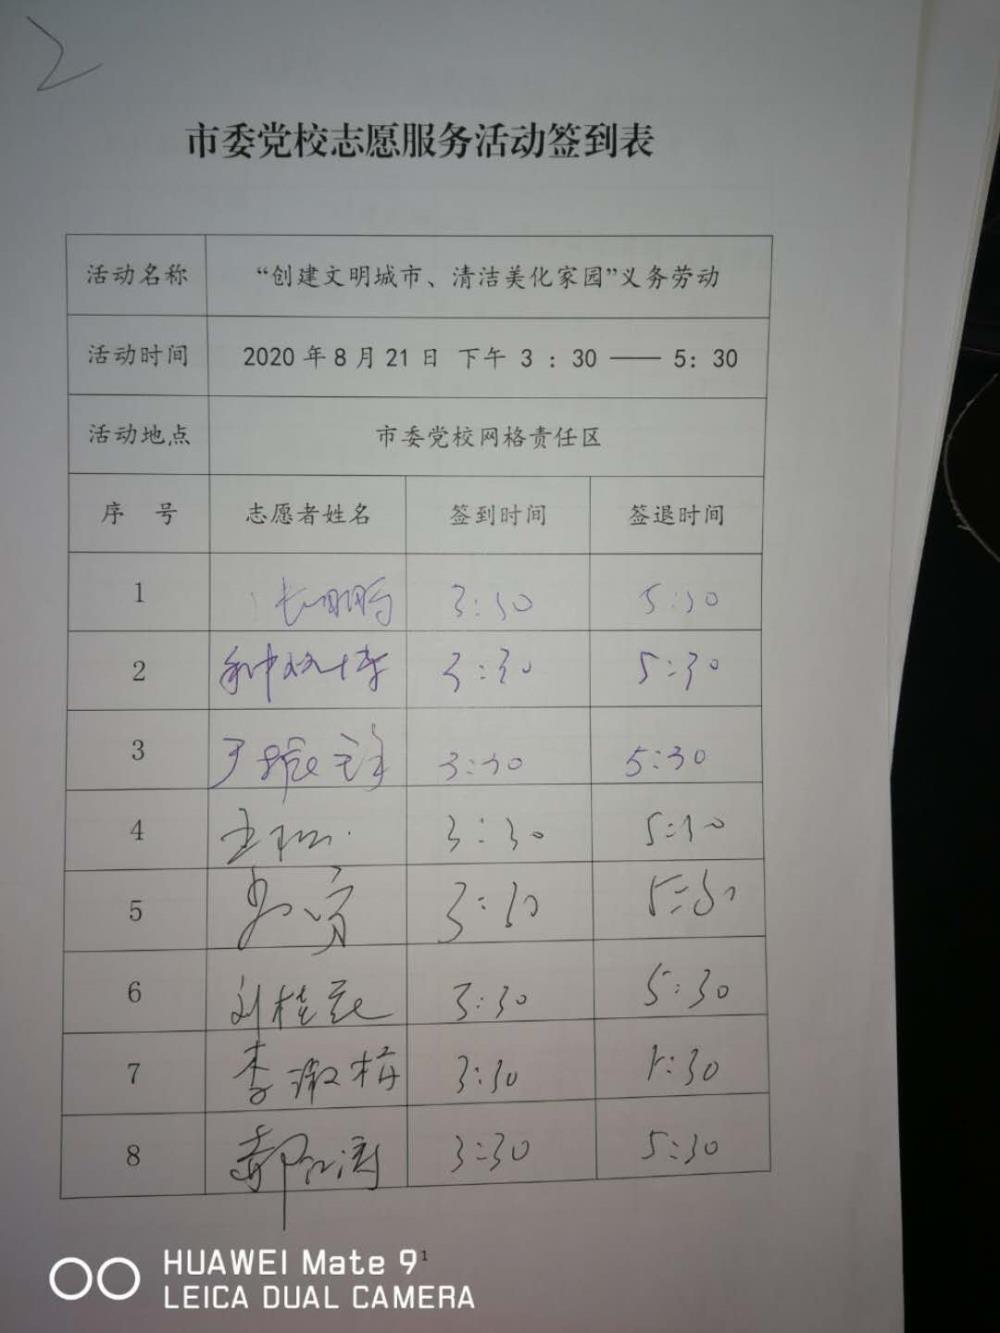 市委党校志愿服务活动签到表
活动名称 “创建文明城市、清洁美化家园”义务劳动
活动时间 2020 年 8 月 21 日 下午 3 : 30 —— 5: 30
活动地点 市委党校网格责任区
序 号 志愿者姓名 签到时间 签退时间
1 3:30 5:30
2 3:30 5:30
3 3:30 5:30
4 3:30 5:30
5 3:30 5:30
6 刘桂花 3:30 5:30
7 李淑梅 3:30 5:30
8 3:30 5:30
1
HUAWEI Mate 9
LEICA DUAL CAMERA